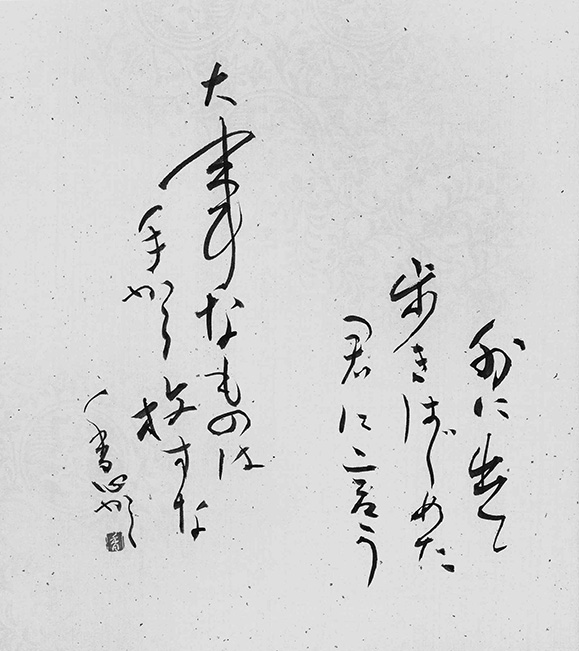 外に出て
歩きはじめた
君に言う
大事なものは
手から放すな